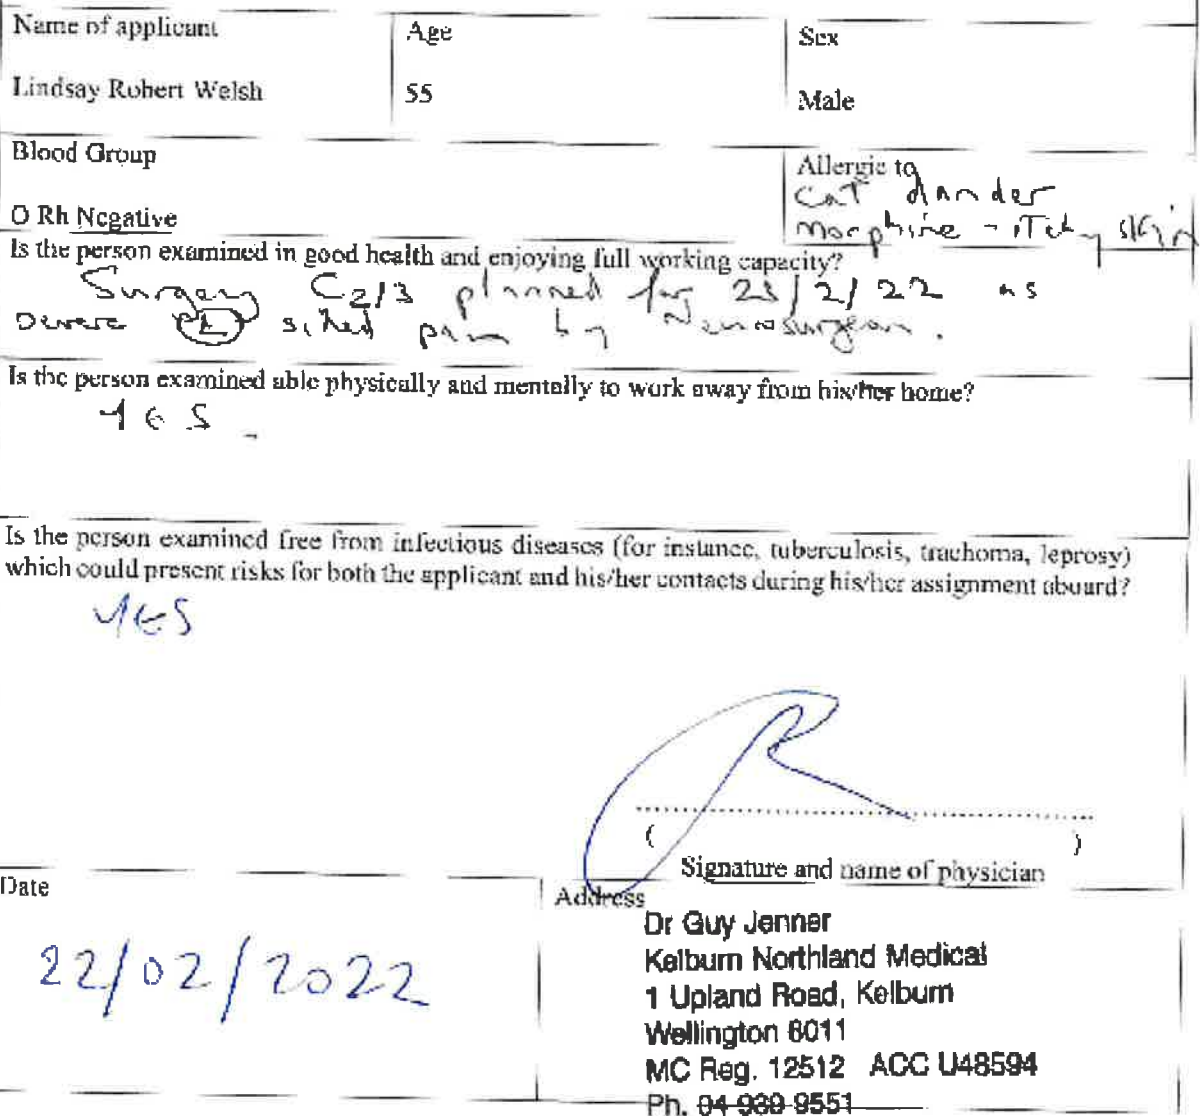 Name of applicant
Age
Sex
Lindsay Robert Welsh
55
Male
Blood Group
Allergic to
Cat dander
O Rh Negative
morphine - itchy skin
Is the person examined in good health and enjoying full working capacity?
Surgery C2/3 planned for 23/2/22 as
severe (L) sided pain by Neurosurgeon.
Is the person examined able physically and mentally to work away from his/her home?
YES
Is the person examined free from infectious diseases (for instance, tuberculosis, trachoma, leprosy)
which could present risks for both the applicant and his/her contacts during his/her assignment aboard?
YES
( )
Signature and name of physician
Date
Address
22/02/2022
Dr Guy Jenner
Kelburn Northland Medical
1 Upland Road, Kelburn
Wellington 6011
MC Reg. 12512 ACC U48594
Ph. 04 939 9551